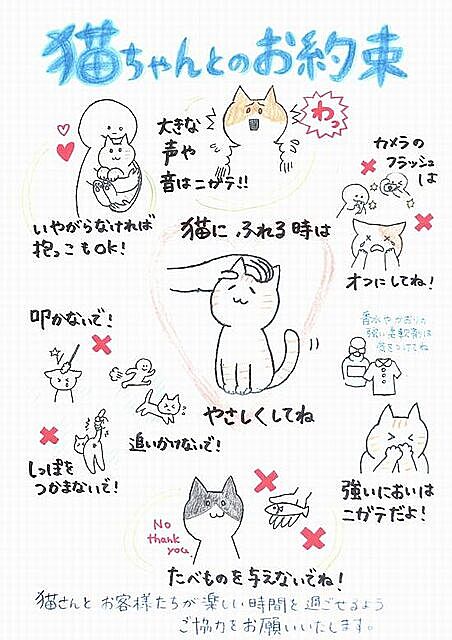 猫ちゃんとのお約束
いやがらなければ
抱っこもOK!
大きな
声や
音はニガテ!!
わっ
カメラの
フラッシュ
は
オフにしてね!
猫に ふれる時は
やさしくしてね
叩かないで!
追いかけないで!
しっぽを
つかまないで!
香水やかおりの
強い柔軟剤は
気をつけてね
強いにおいは
ニガテだよ!
No
thank
you.
たべものを与えないでね!
猫さんと お客様たちが楽しい時間を過ごせるよう
ご協力をお願いいたします。